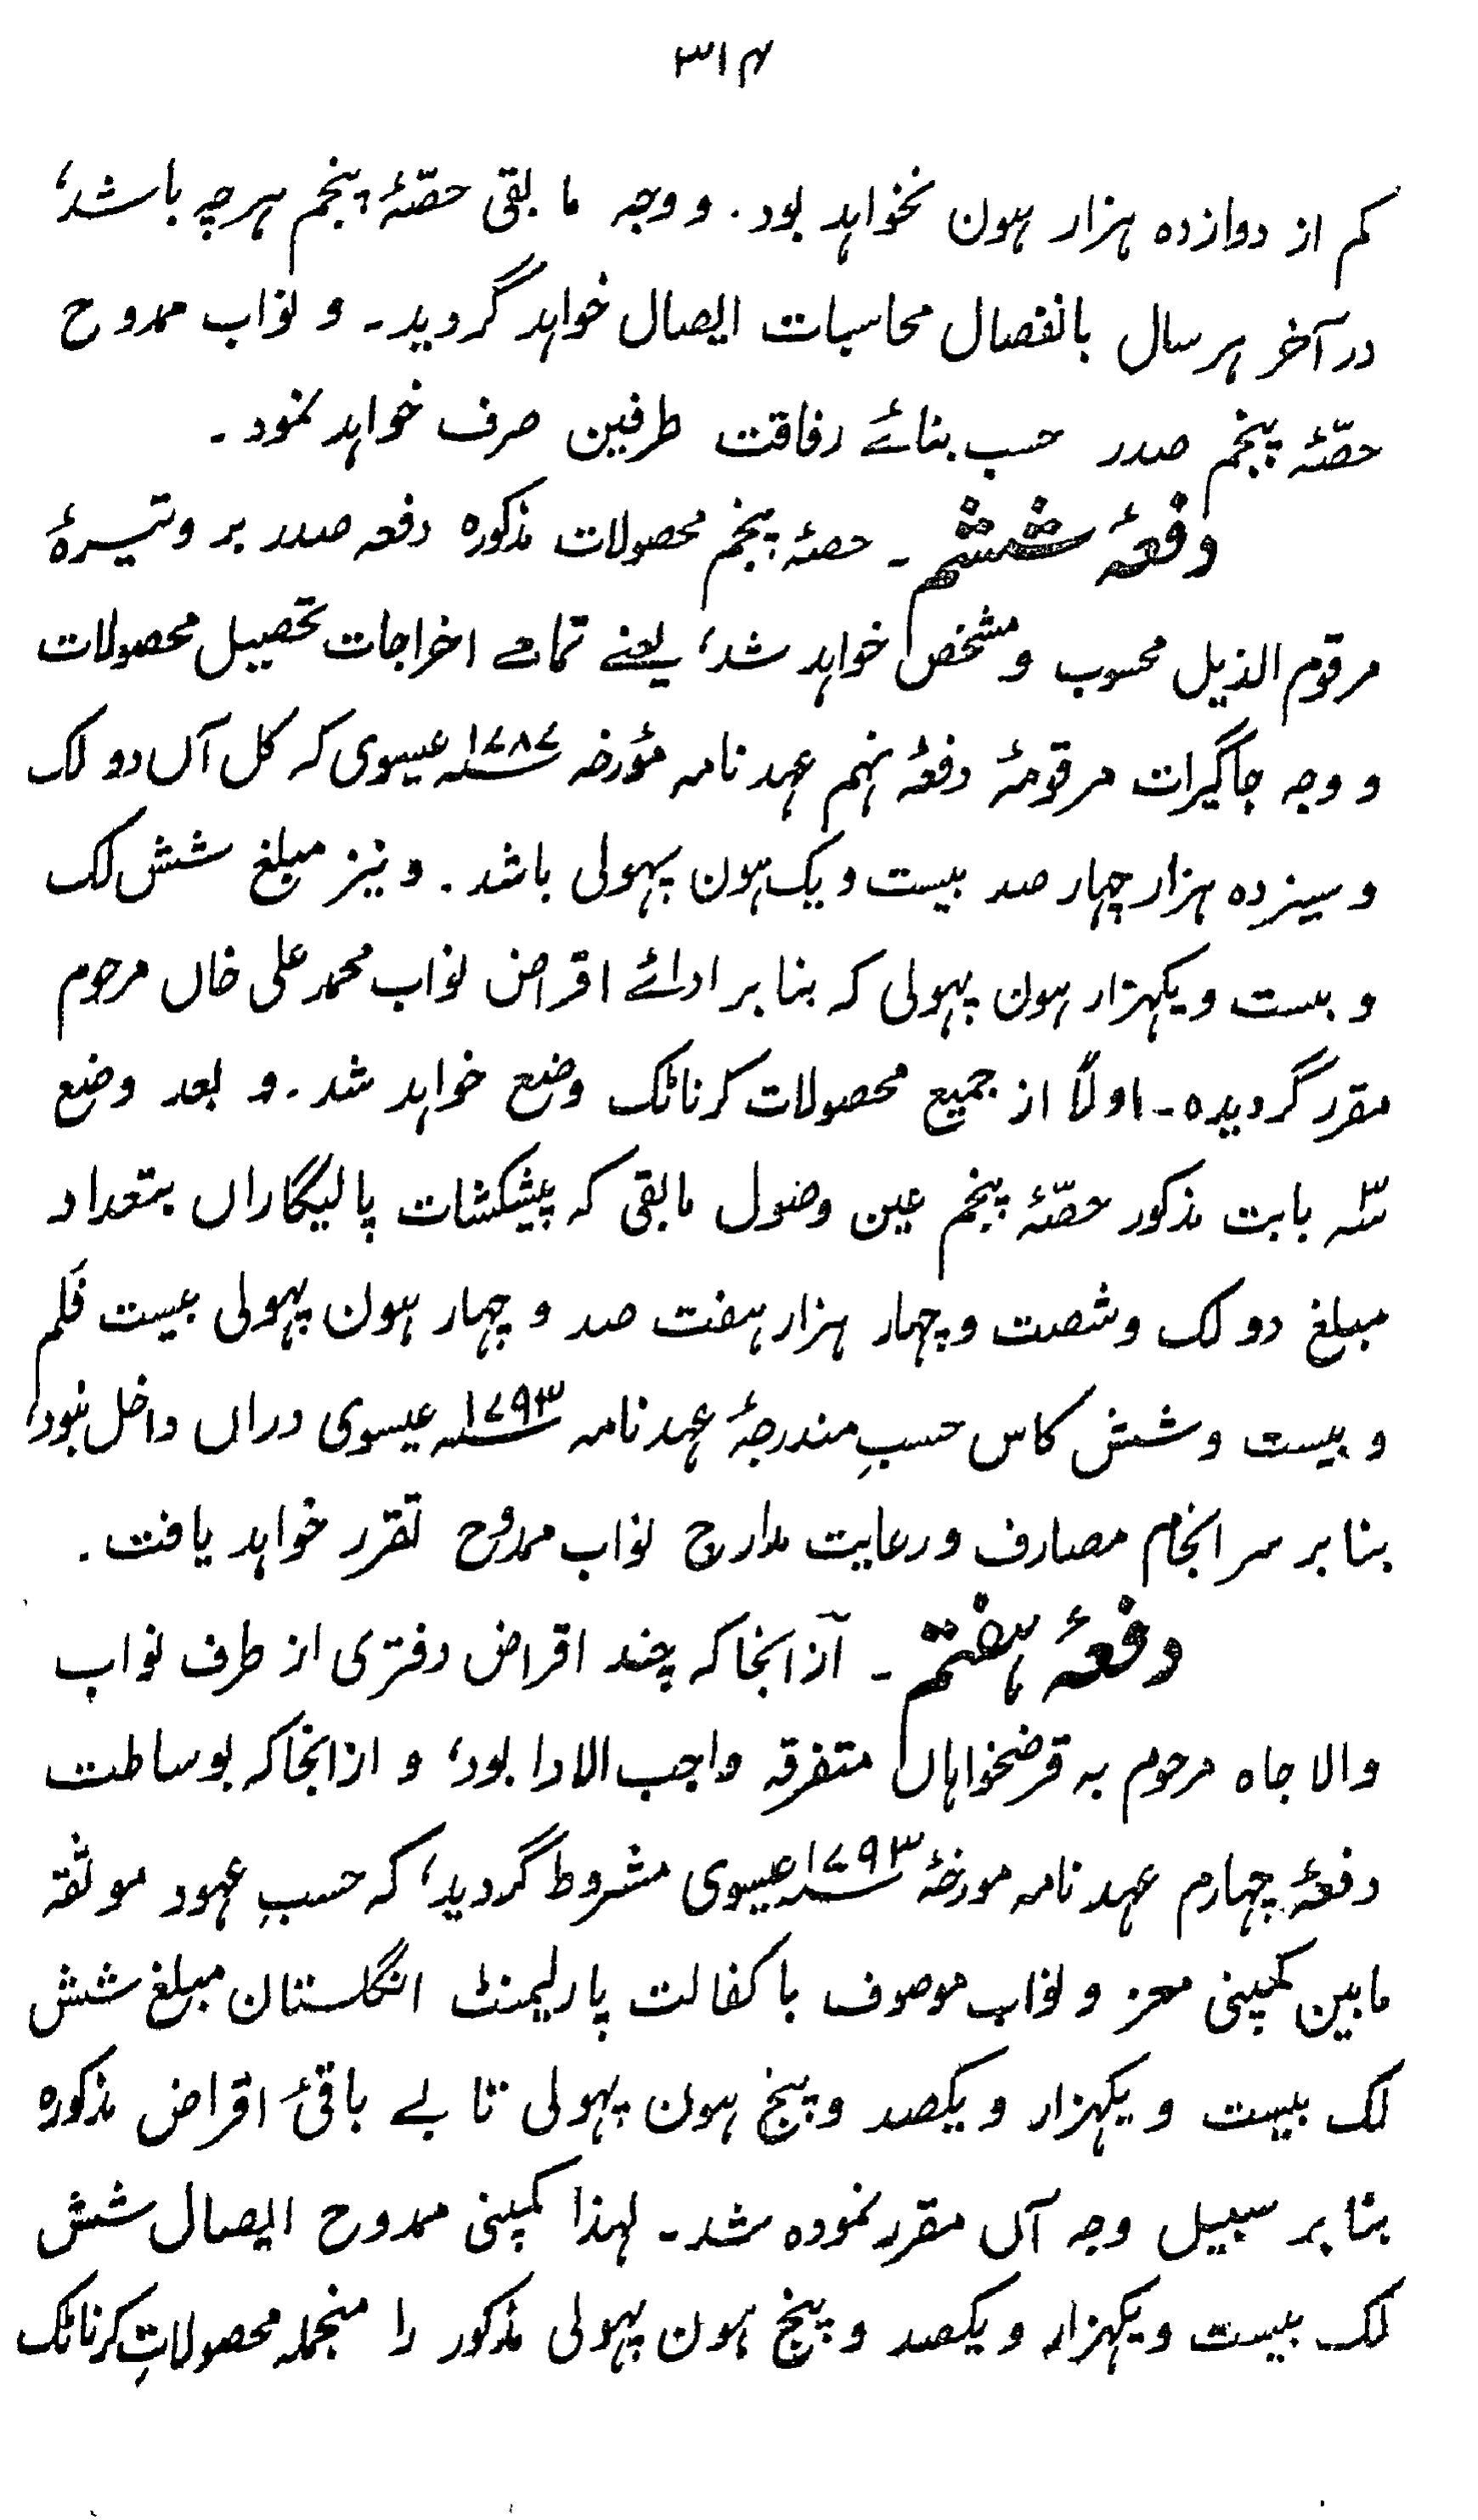 ۳۱۴
کم از دوازده ہزار ہون نخواہد بود۔ و وجہ ما بقی حصّۂ پنجم ہرچہ باشد،
در آخر ہر سال بانفصال محاسبات ایصال خواہد گردید۔ و نواب ممدوح
حصّۂ پنجم صدر حسب بنائے رفاقت طرفین صرف خواہد نمود۔
دفعۂ ششم ۔ حصۂ پنجم محصولات مذکورہ دفعہ صدر بر وتیرۂ
مرقوم الذیل محسوب و مشخص خواہد شد، یعنے تمامے اخراجات تحصیل محصولات
و وجہ جاگیرات مرقومۂ دفعۂ نہم عہد نامہ مؤرخہ ۱۷۸۷؁ عیسوی کہ کل آں دو لک
و سیزدہ ہزار چہار صد بیست و یک ہون پہولی باشد۔ و نیز مبلغ شش لک
و بست و یکہزار ہون پہولی کہ بنا بر ادائے اقراض نواب محمد علی خاں مرحوم
مقرر گردیدہ۔ اولاً از جمیع محصولات کرناٹک وضع خواہد شد۔ و بعد وضع
سہ بابت مذکور حصّۂ پنجم عین وصول مابقی کہ پیشکشات پالیگاراں بتعداد
مبلغ دو لک و شصت و چہار ہزار ہفت صد و چہار ہون پہولی بیست فلم
و بیست و شش کاس حسبِ مندرجۂ عہد نامہ ۱۷۹۳؁ عیسوی دراں داخل بود،
بنا بر سر انجام مصارف و رعایت مدارج نواب ممدوح تقرر خواہد یافت۔
دفعۂ ہفتم ۔ آزانجا کہ چند اقراض دفتری از طرف نواب
والا جاہ مرحوم بہ قرضخواہاں متفرقہ واجب الادا بود، و ازانجا کہ بوساطت
دفعۂ چہارم عہد نامہ مورخۂ ۱۷۹۳؁ عیسوی مشروط گردید، کہ حسبِ عہود موثقہ
مابین کمپنی معز و نواب موصوف با کفالت پارلیمنٹ انگلستان مبلغ شش
لک بیست و یکہزار و یکصد و پنج ہون پہولی تا بے باقئ اقراض مذکورہ
بنا بر سبیل وجہ آں مقرر نمودہ شد۔ لہذا کمپنی ممدوح ایصال شش
لک بیست و یکہزار و یکصد و پنج ہون پہولی مذکور را منجملہ محصولاتِ کرناٹک